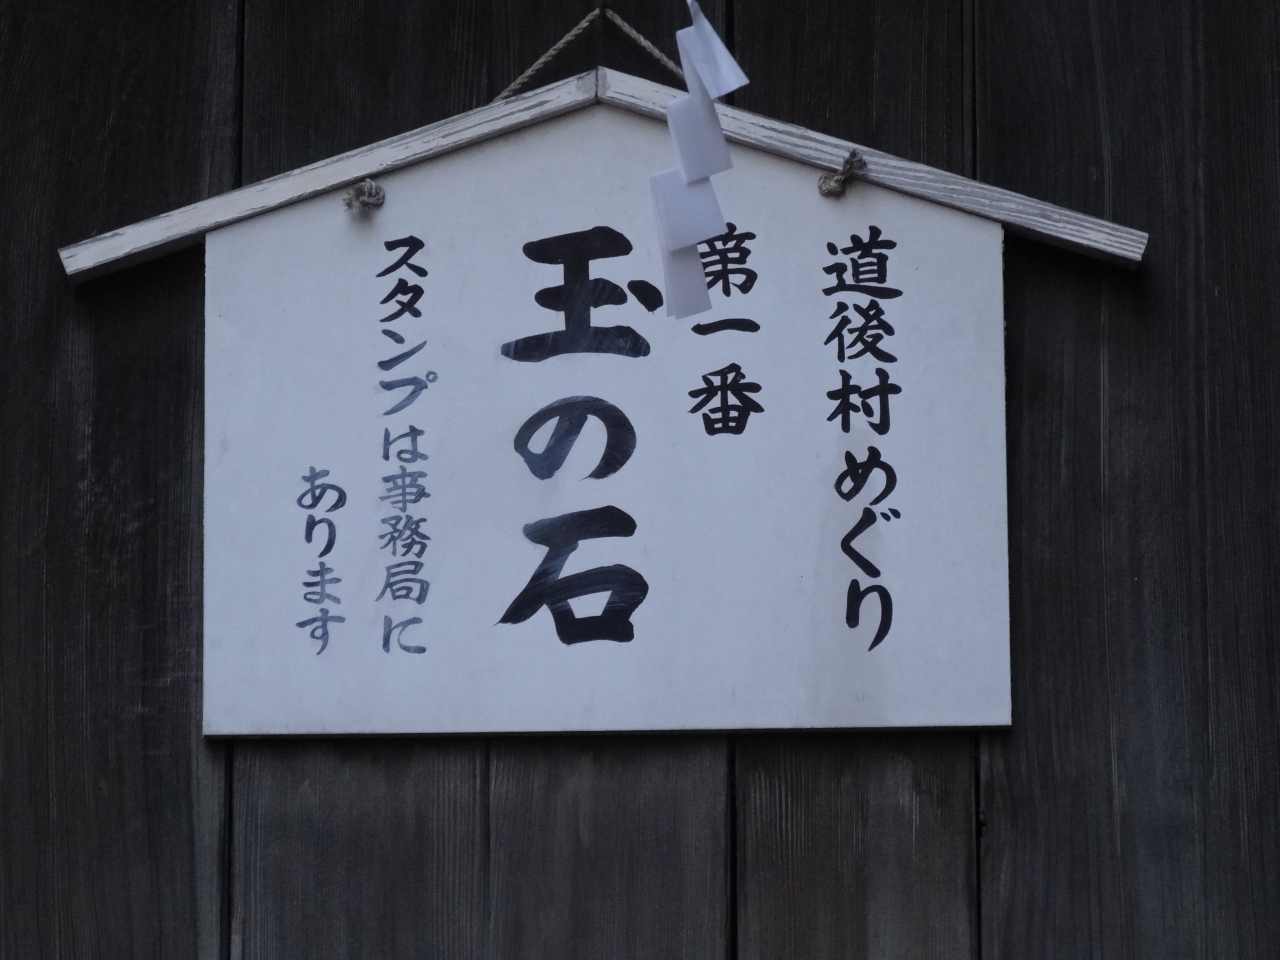 道後村めぐり
第一番
玉の石
スタンプは事務局に
あります